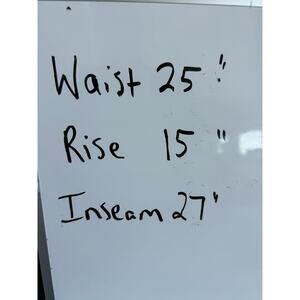 Waist 25"
Rise 15"
Inseam 27"